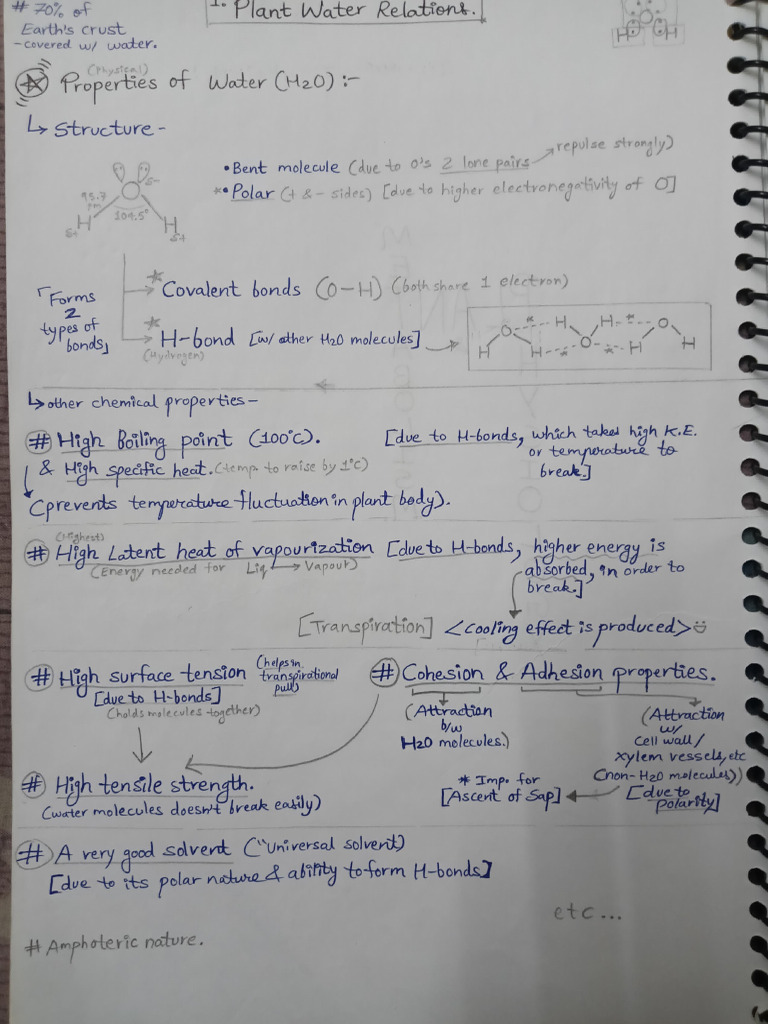 # 70% of
Earth's crust
- covered w/ water.
1. Plant Water Relations.
H O H
(Physical)
Properties of Water (H2O) :-
↳ Structure -
δ-
95.7 pm
104.5°
H H
δ+ δ+
• Bent molecule (due to O's 2 lone pairs → repulse strongly)
*• Polar (+ & - sides) [due to higher electronegativity of O]
「Forms
2
types of
bonds」
* Covalent bonds (O-H) (both share 1 electron)
* H-bond [w/ other H2O molecules] →
(Hydrogen)
H O H --*-- H O H --*-- H O H
↳ other chemical properties -
# High Boiling point (100°C). [due to H-bonds, which takes high K.E.
or temperature to
break.]
& High specific heat. (temp. to raise by 1°C)
(prevents temperature fluctuation in plant body).
(Highest)
# High Latent heat of vapourization [due to H-bonds, higher energy is
absorbed, in order to
break.]
(Energy needed for Liq → Vapour)
[Transpiration] <cooling effect is produced>
# High surface tension (helps in
transpirational
pull)
[due to H-bonds]
(holds molecules together)
# Cohesion & Adhesion properties.
(Attraction
b/w
H2O molecules.)
(Attraction
w/
cell wall/
xylem vessels, etc
(non-H2O molecules))
[due to
polarity]
* Imp. for
[Ascent of Sap]
# High tensile strength.
(water molecules doesn't break easily)
# A very good solvent ("universal solvent)
[due to its polar nature & ability to form H-bonds]
etc...
# Amphoteric nature.